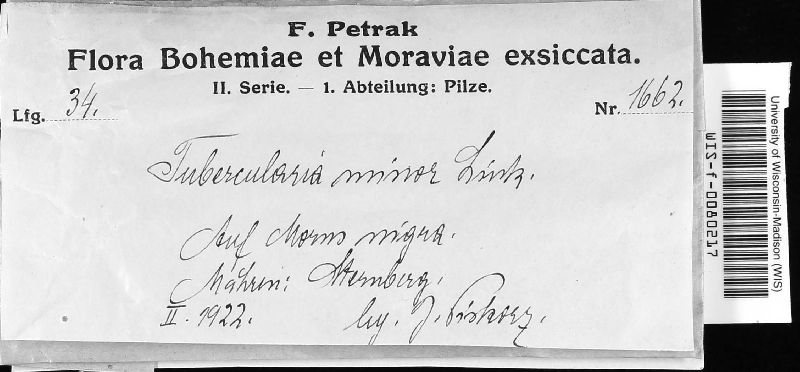 F. Petrak
Flora Bohemiae et Moraviae exsiccata.
II. Serie. — 1. Abteilung: Pilze.
Lfg. 34. Nr. 1662.
Tubercularia minor Link.
Auf Morus nigra.
Mähren: Sternberg.
II. 1922. leg. J. Piskorz.
University of Wisconsin-Madison (WIS)
WIS-f-0080217